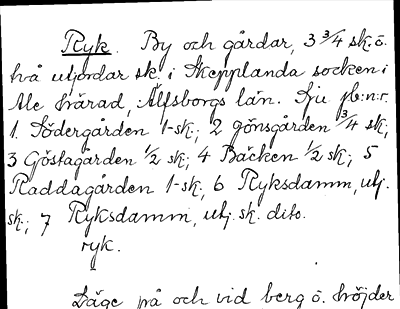 Ryk. By och gårdar, 3 3/4 sk. ö.
två utjordar sk. i Skepplanda socken i
Ale härad, Älfsborgs län. Sju jb:n:r.
1. Södergården 1 sk.; 2 Jönsgården 3/4 sk.;
3 Göstagården 1/2 sk.; 4 Bäcken 1/2 sk.; 5
Raddagården 1 sk.; 6 Ryksdamm, utj.
sk.; 7 Ryksdamm, utj. sk. dito.
ryk.
Läge på och vid berg o. höjder